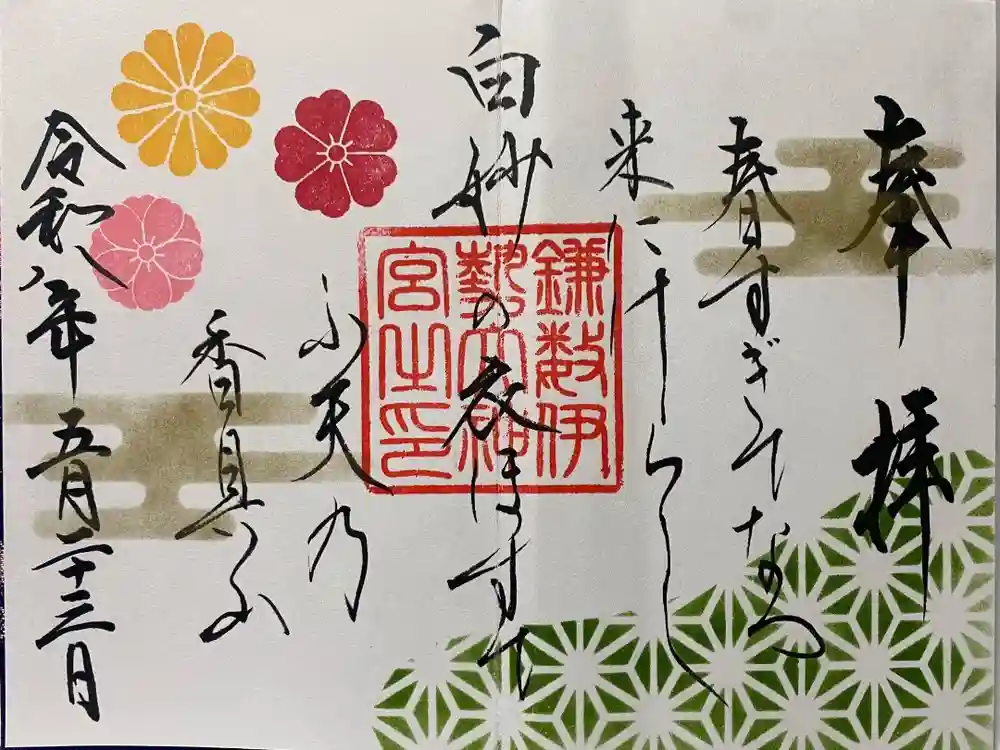 奉拝
春すぎてなつ
来にけらし
白妙の衣ほすて
ふ天乃
香具
令和八年五月二十三日
鎌数伊
勢大神
宮之印